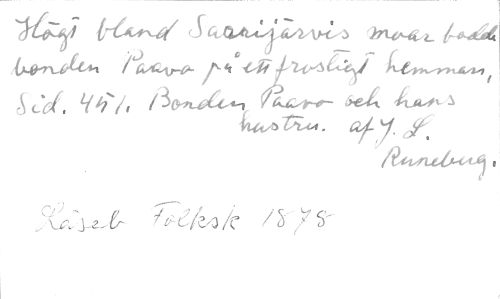 Högt bland Saarijärvis moar bodde
bonden Paavo på ett frostigt hemman,
Sid. 451. Bonden Paavo och hans
hustru. af J. L.
Runeberg.
Läseb Folksk 1878